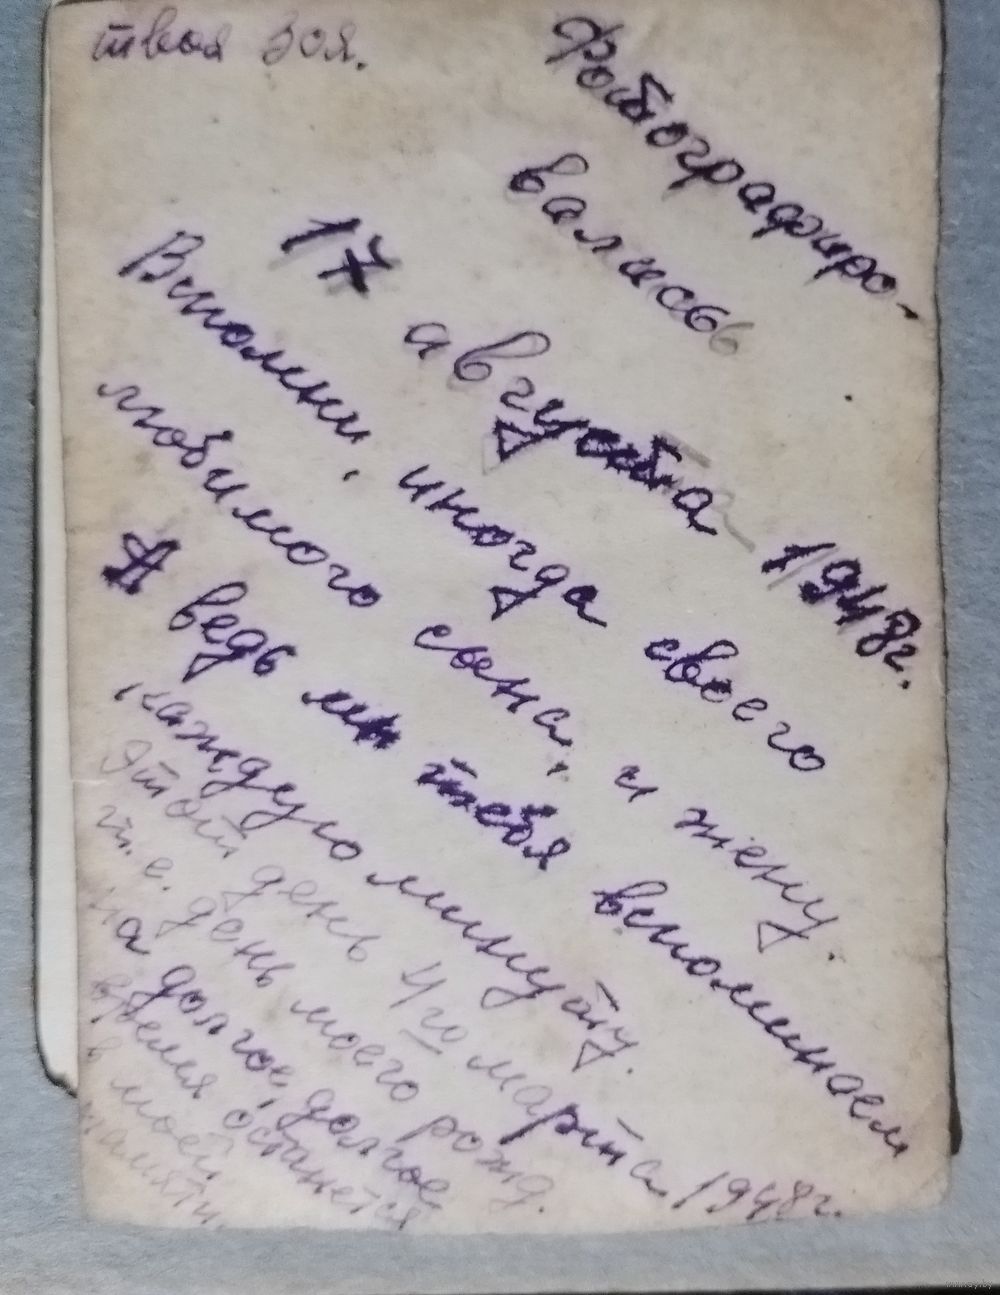 твоя Зоя.
Фотографиро-
вались
17 августа 1948г.
Вспомни, иногда своего
любимого сына, и жену.
А ведь мы тебя вспоминаем
каждую минуту.
Этот день 4го марта 1948г.
т. е. день моего рожд.
на долгое, долгое
время останется
в моей
памяти.